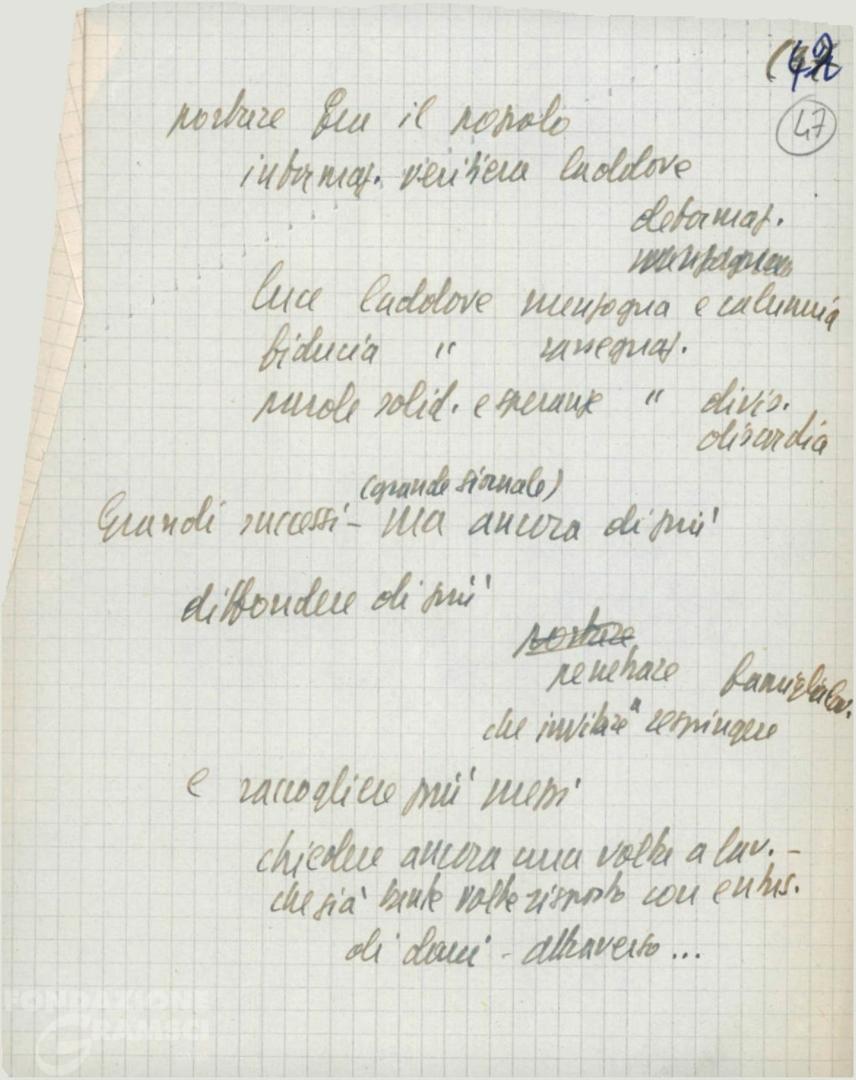 42
47
portare fra il popolo
informaz. veritiera laddove
deformaz.
menzogna
luce laddove menzogna e calunnia
fiducia " rassegnaz.
parole solid. e speranze " divis.
discordia
(grande giornale)
Grandi successi - Ma ancora di più
diffondere di più
portare
penetrare famiglia lav.
che invitare a respingere
e raccogliere più mezzi
chiedere ancora una volta a lav. -
che già tante volte risposto con entus.
di dare - attraverso ...
FONDAZIONE
GRAMSCI